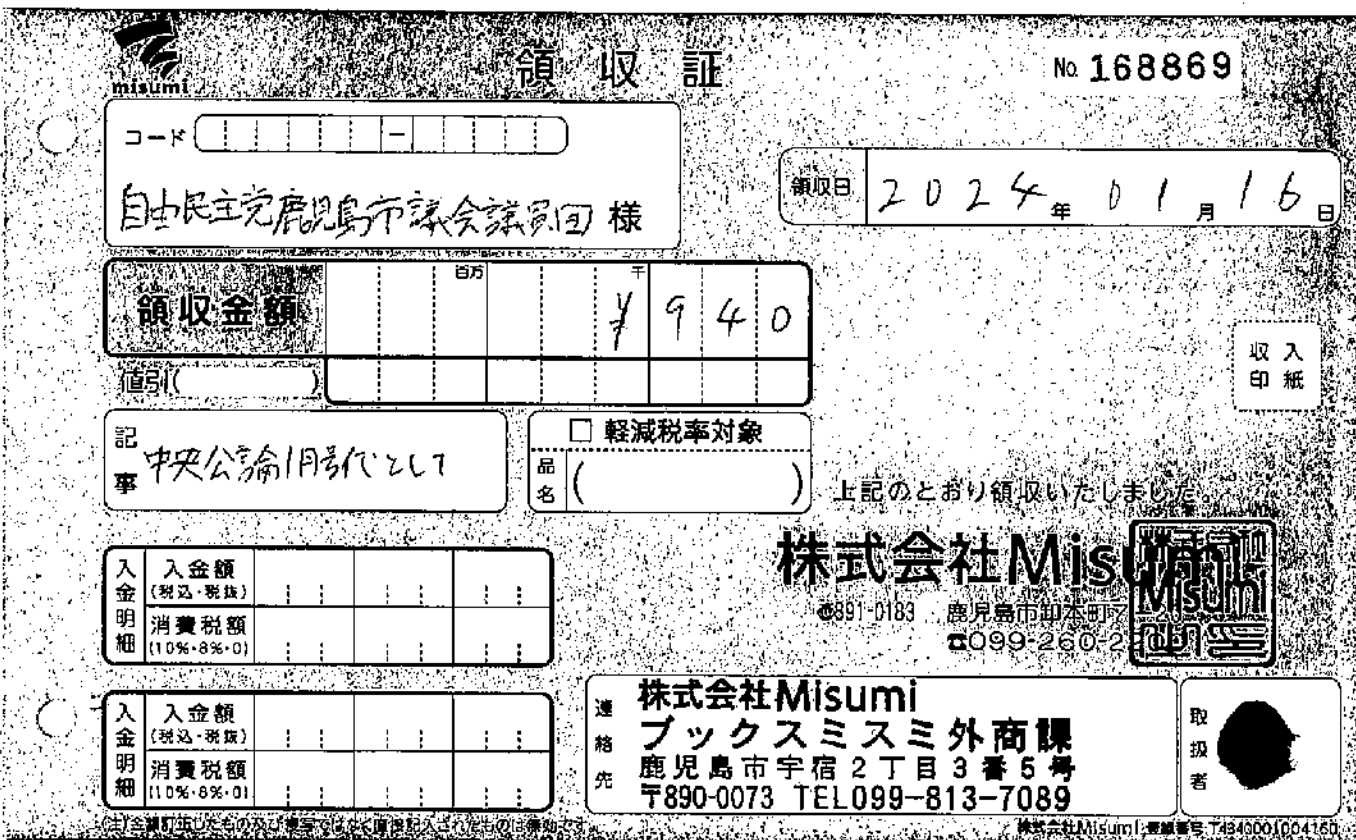 misumi
領収証
No. 168869
コード
自由民主党鹿児島市議会議員団 様
領収日 2024年 01月 16日
領収金額 百万 千 ¥940
値引( )
収入印紙
記事 中央公論1月号代として
□ 軽減税率対象
品名 ( )
上記のとおり領収いたしました。
株式会社Misumi
〒891-0183 鹿児島市卸本町
☎099-260-2
入金明細 入金額 (税込・税抜)
消費税額 (10%・8%・0)
入金明細 入金額 (税込・税抜)
消費税額 (10%・8%・0)
連絡先 株式会社Misumi
ブックスミスミ外商課
鹿児島市宇宿2丁目3番5号
〒890-0073 TEL099-813-7089
取扱者
(注)金額訂正したもの及び複写ではなく直接記入されたものは無効です。
株式会社Misumi 登録番号:T4340001004150